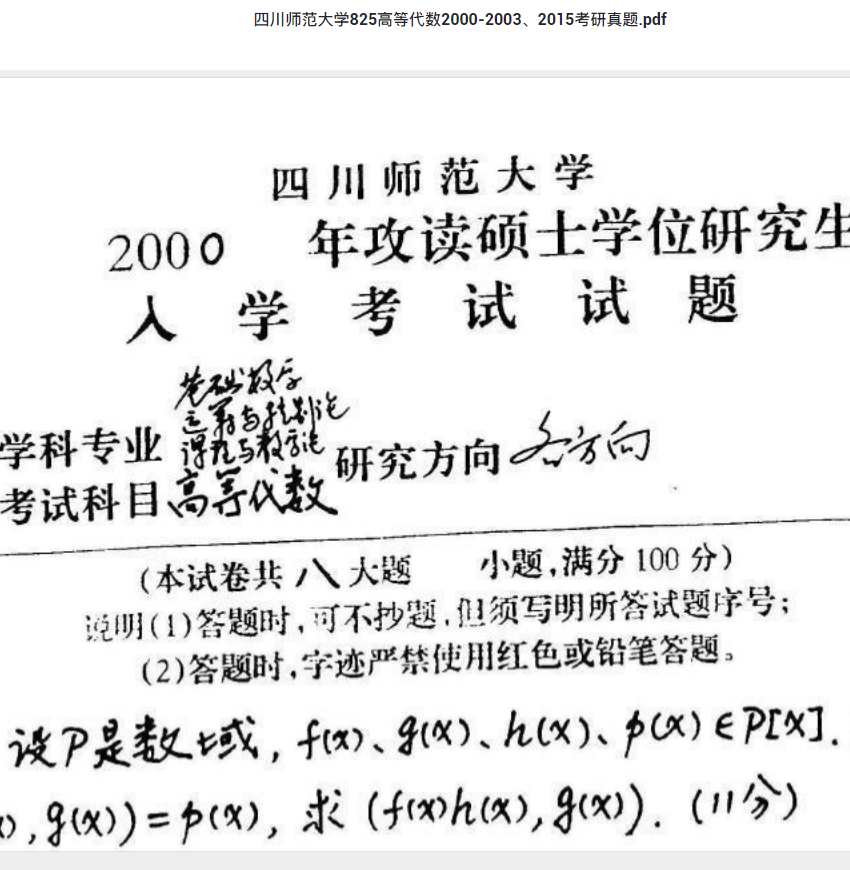 四川师范大学825高等代数2000-2003、2015考研真题.pdf
四川师范大学
2000 年攻读硕士学位研究生
入学考试试题
基础数学
运筹与控制论
课程与教学论
学科专业 研究方向 各方向
考试科目 高等代数
(本试卷共 八 大题 小题,满分 100 分)
说明(1)答题时,可不抄题,但须写明所答试题序号;
(2)答题时,字迹严禁使用红色或铅笔答题。
设P是数域, f(x)、g(x)、h(x)、p(x)∈P[x].
), g(x)) = p(x), 求 (f(x)h(x), g(x)). (11分)